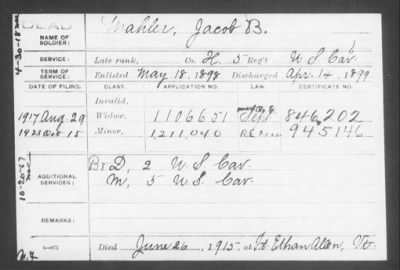 DEAD
NAME OF SOLDIER: Mahler, Jacob B.
SERVICE: Late rank, Co. H. 5 Regt U S Cav.
TERM OF SERVICE: Enlisted May 18, 1898 Discharged Apr. 14, 1899
DATE OF FILING. CLASS. APPLICATION NO. LAW. CERTIFICATE NO.
Invalid,
1917 Aug 29 Widow, 1106651 846,202
15 Minor, 1,211,040 945146
D, 2 U.S. Cav
ADDITIONAL SERVICES: M, 5 U.S. Cav.
REMARKS:
Died June 26, 1915, at Ft. Ethan Allen, Vt.